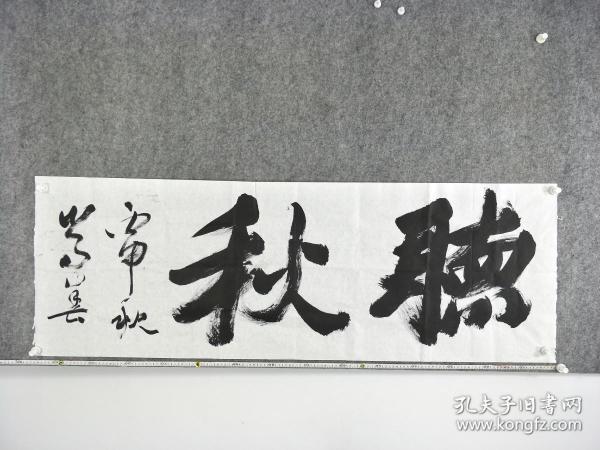 聽秋
丙申秋
孔夫子旧書网
www.kongfz.com